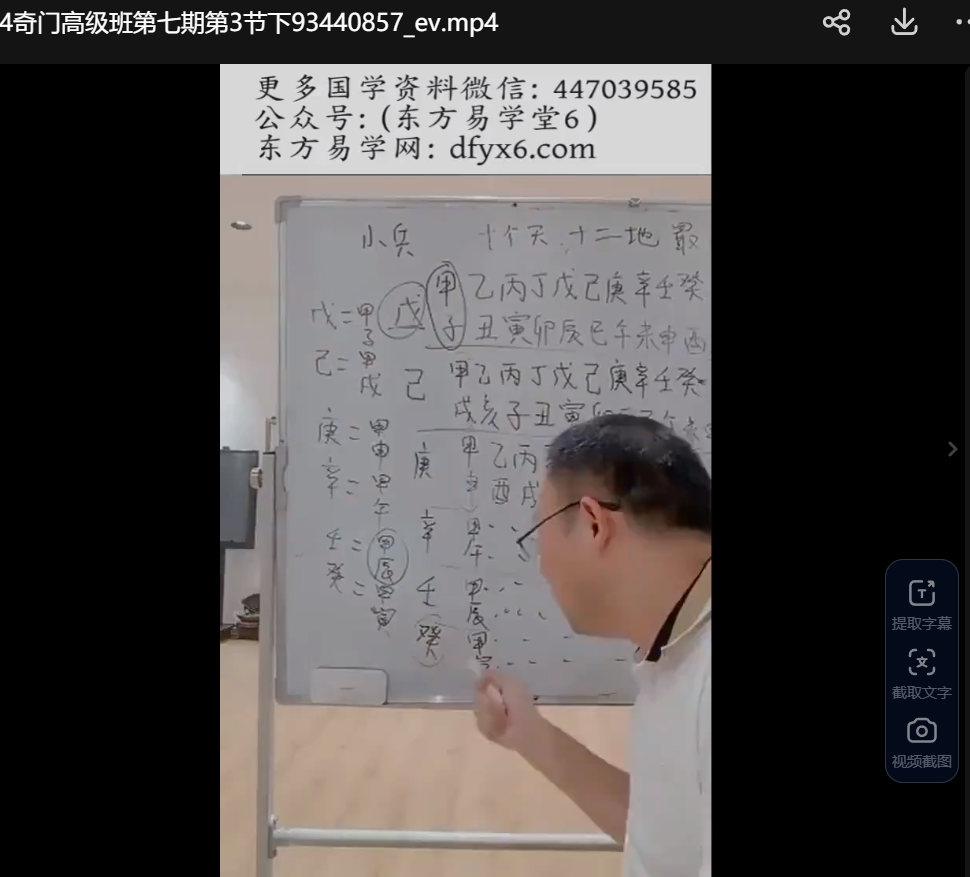 4奇门高级班第七期第3节下93440857_ev.mp4
更多国学资料微信：447039585
公众号：(东方易学堂6)
东方易学网：dfyx6.com
小兵 十个天.十二地
戊=甲子 戊 甲乙丙丁戊己庚辛壬癸
子丑寅卯辰巳午未申酉
己=甲戌 己 甲乙丙丁戊己庚辛壬癸
戌亥子丑寅
庚=甲申 庚 甲乙丙
申酉戌
辛=甲午 辛 甲午
壬=甲辰 壬 甲辰
癸=甲寅 癸 甲
提取字幕
截取文字
视频截图